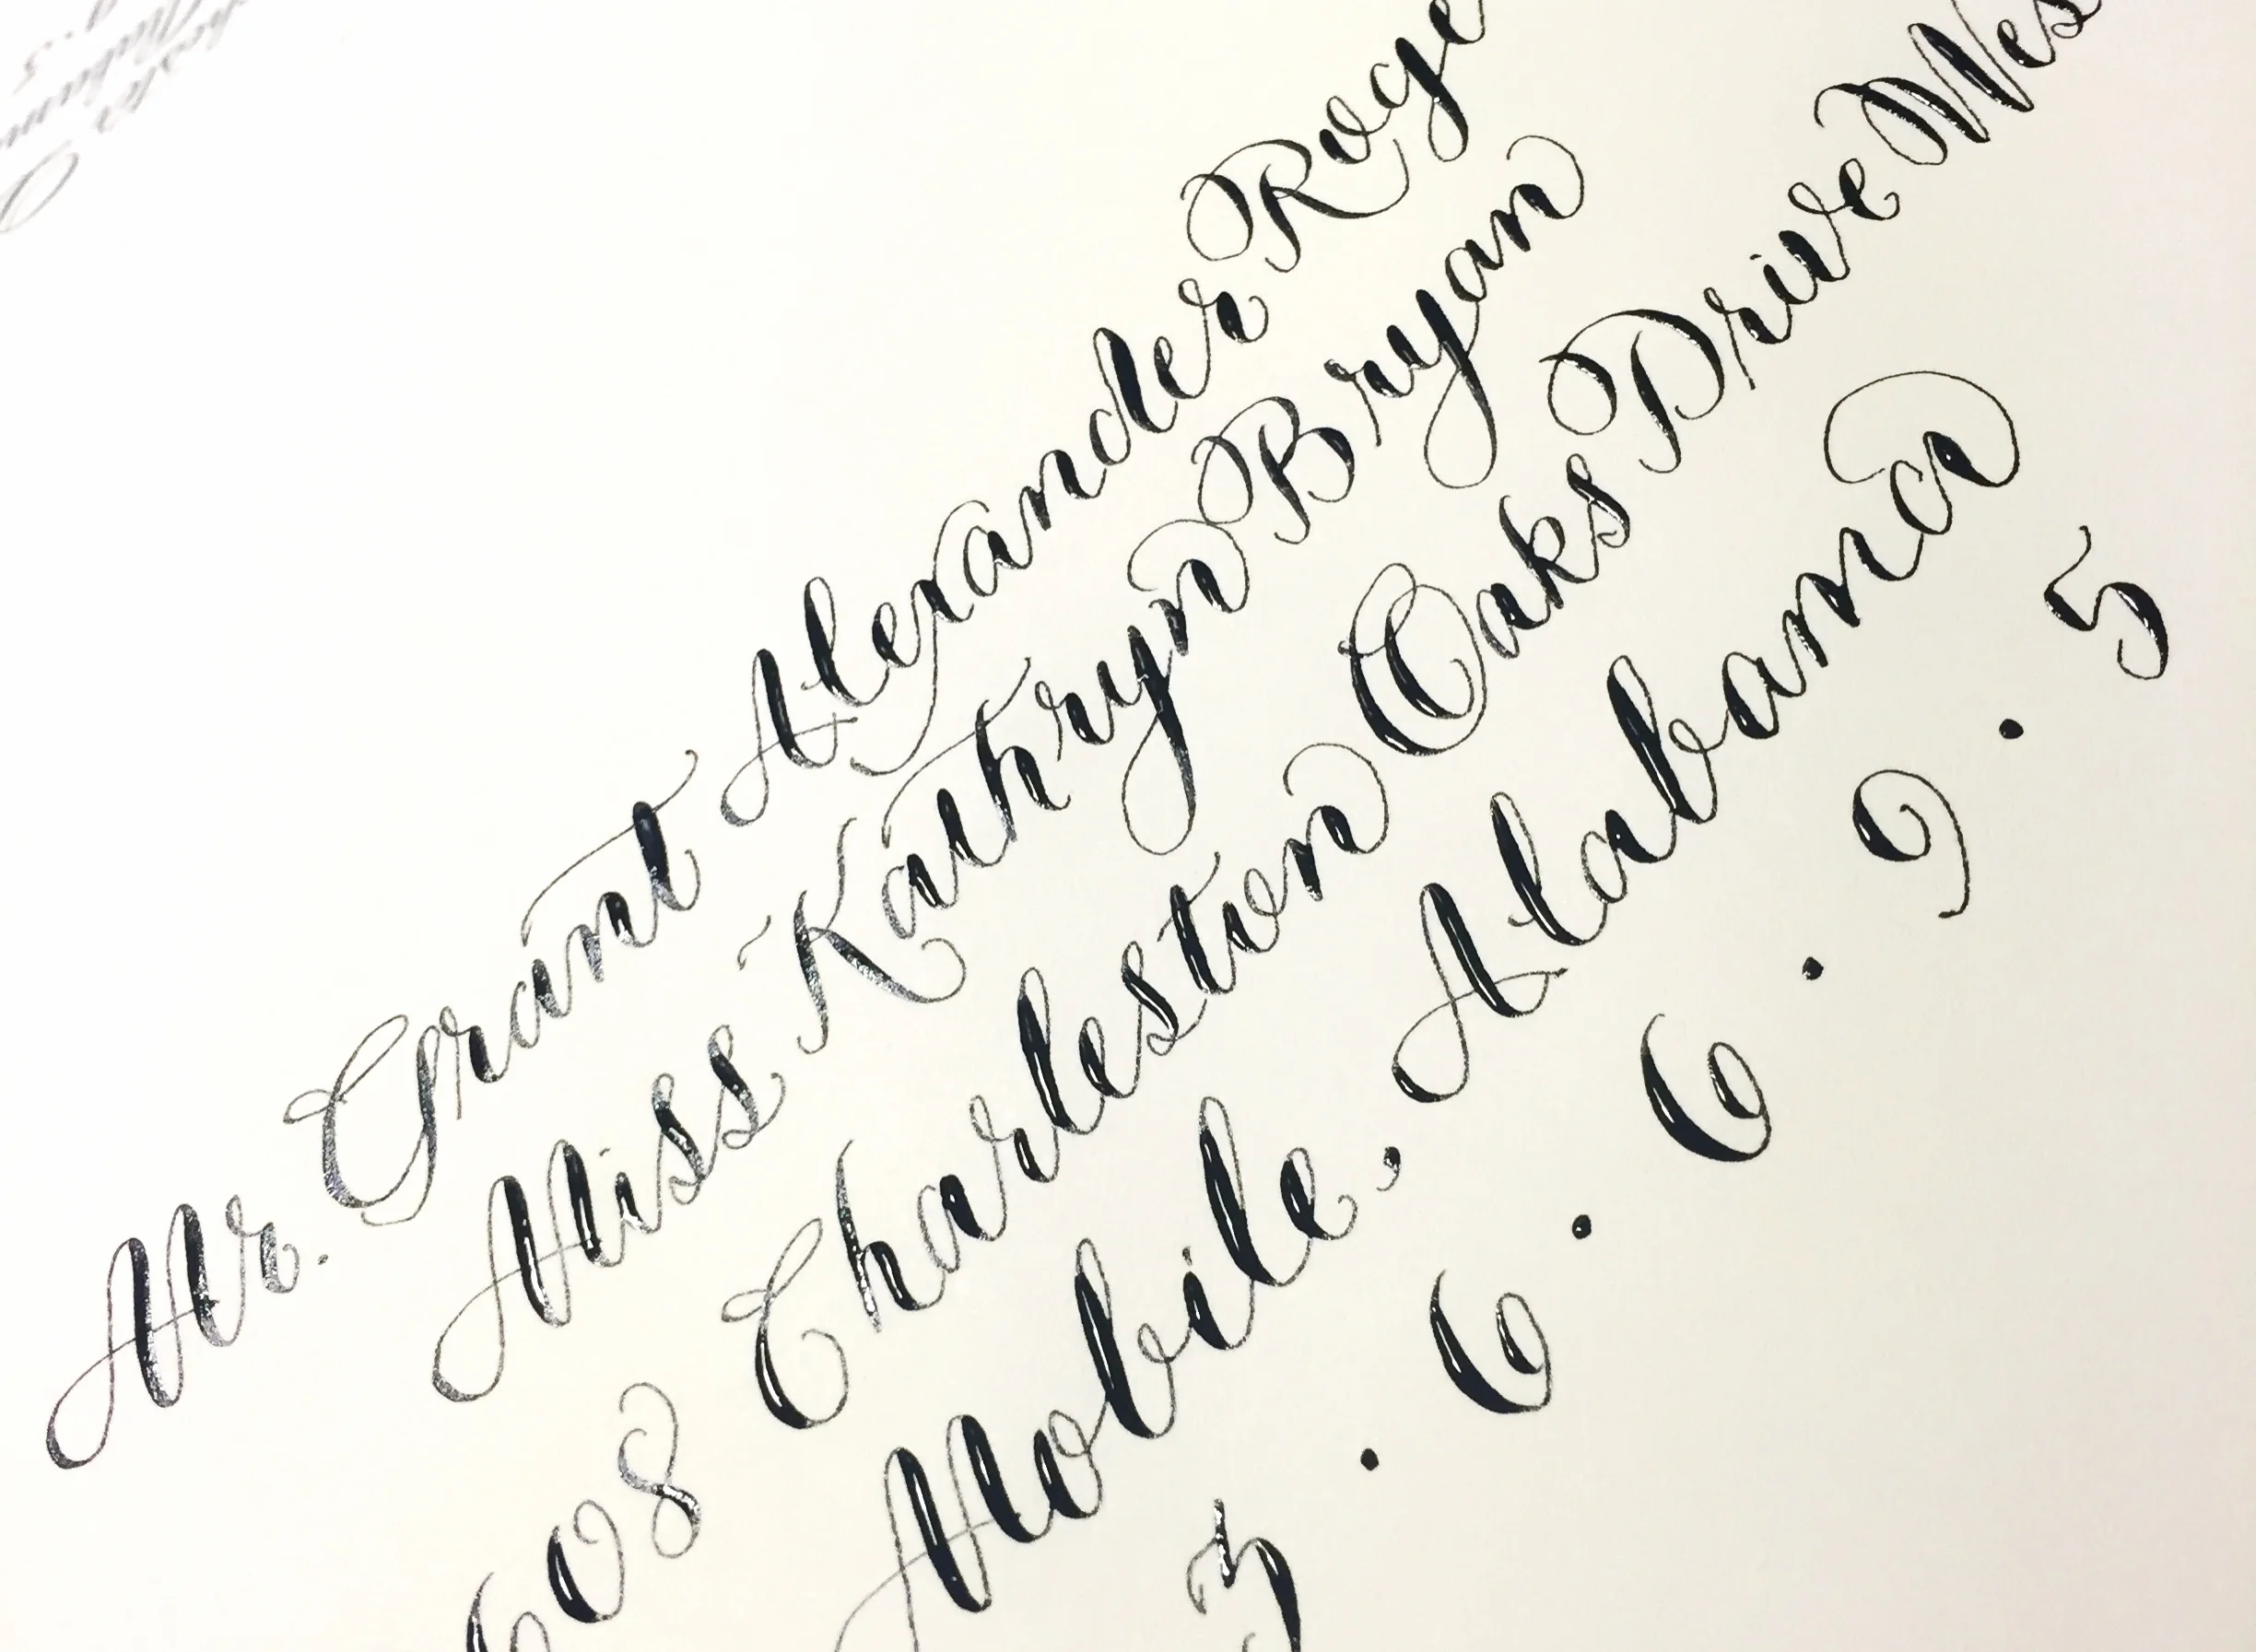 Mr. Grant Alexander Roge
Miss Kathryn Bryan
608 Charleston Oaks Drive Wes
Mobile, Alabama
3 . 6 . 6 . 9 . 5